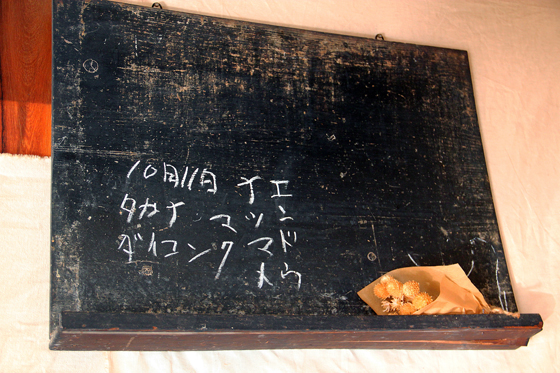 10月11日 イエ
タカイ マツン
ダイコンクマド
トウ